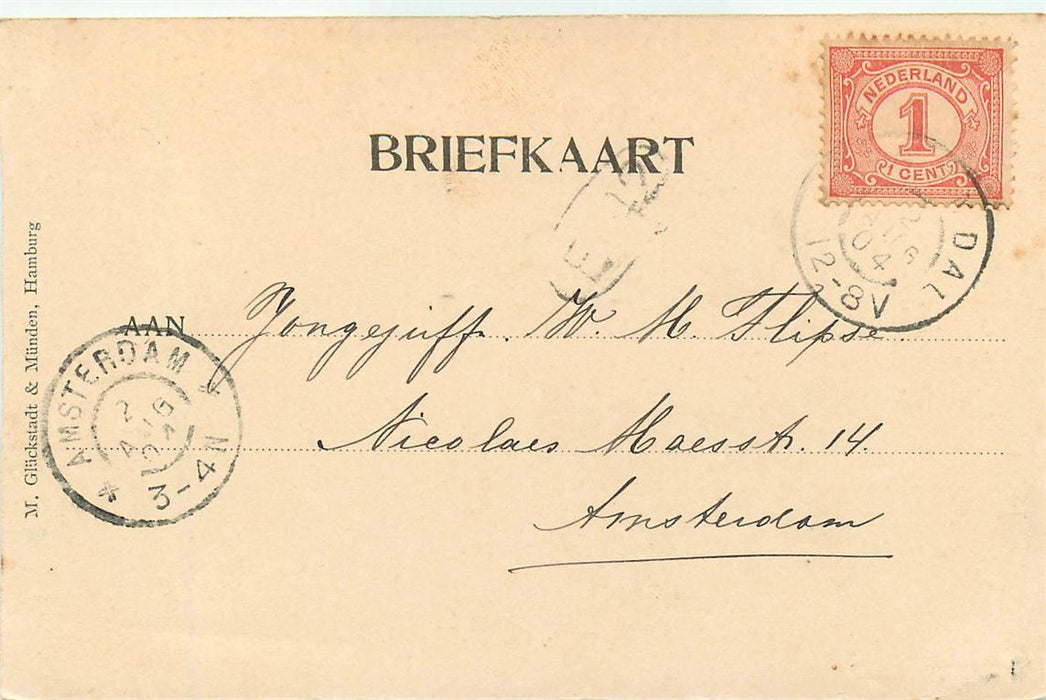 NEDERLAND
1
1 CENT
BRIEFKAART
DAL
12-8V
AAN Jongejuff. W. M. Flipse.
Nicolaes Maesstr. 14.
Amsterdam
AMSTERDAM
2 AUG 04
3-4N
M. Glückstadt & Münden, Hamburg